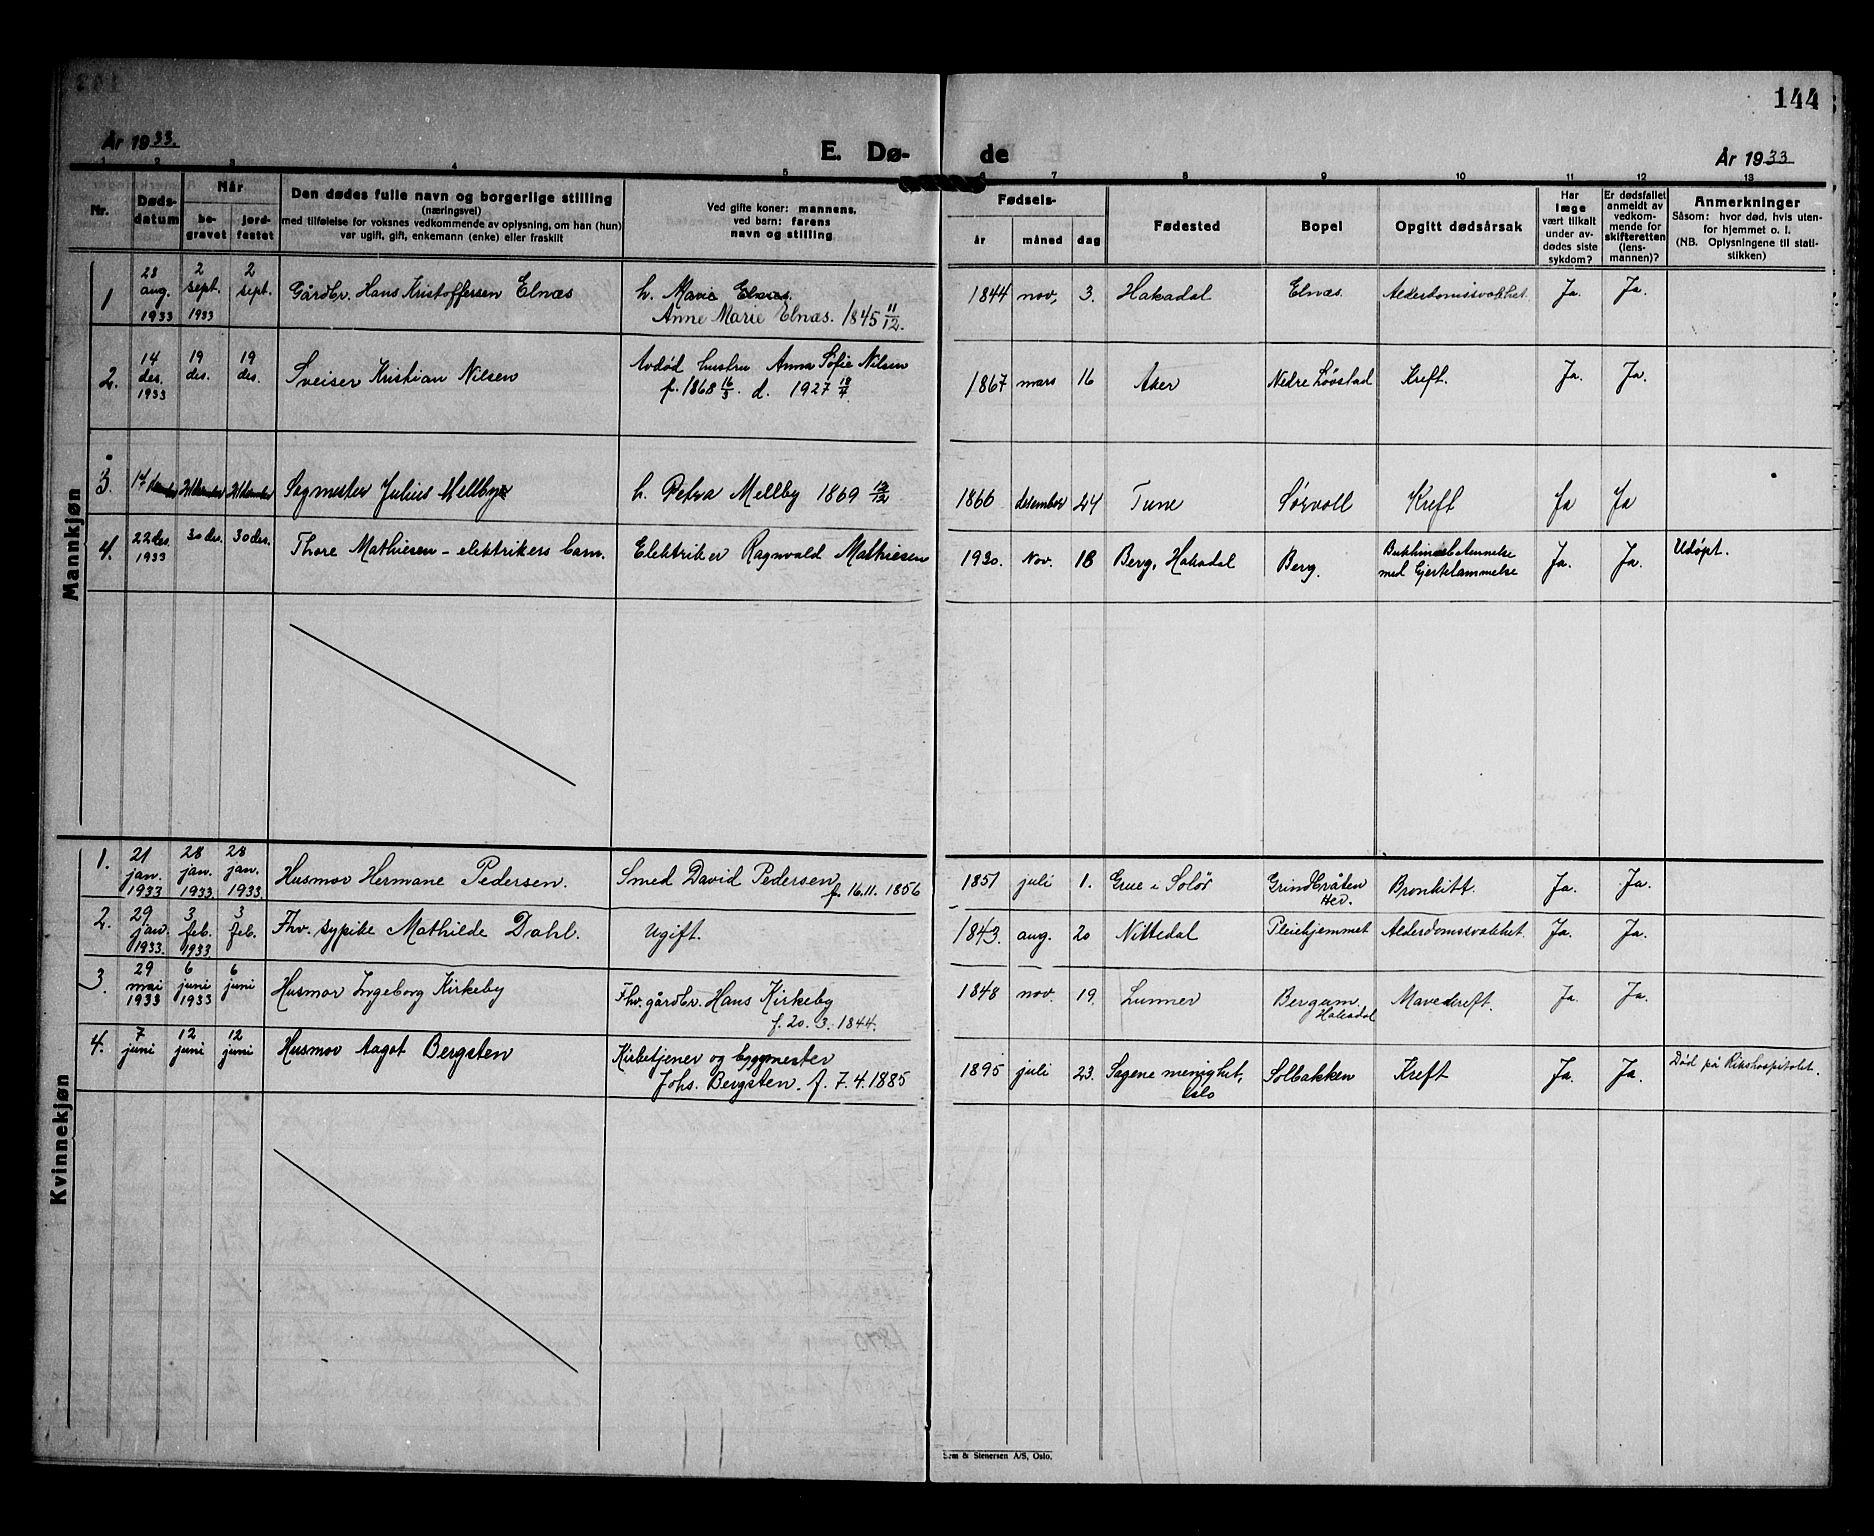 144
År 1933.
E. Dø- de
År 1933
1 2 3 4 5 6 7 8 9 10 11 12 13
Nr.
Døds-
datum
Når
be-
gravet
jord-
festet
Den dødes fulle navn og borgerlige stilling
(næringsvei)
med tilføielse for voksnes vedkommende av oplysning, om han (hun)
var ugift, gift, enkemann (enke) eller fraskilt
Ved gifte koner: mannens,
ved barn: farens
navn og stilling
Fødsels-
år
måned
dag
Fødested
Bopel
Opgitt dødsårsak
Har
læge
vært tilkalt
under av-
dødes siste
sykdom?
Er dødsfallet
anmeldt av
vedkom-
mende for
skifteretten
(lens-
mannen)?
Anmerkninger
Såsom: hvor død, hvis uten-
for hjemmet o. l.
(NB. Oplysningene til stati-
stikken)
Mannkjøn
1 28 aug. 1933 2 sept. 1933 2 sept. Gårdbr. Hans Kristoffersen Elnæs h. Marie Elnæs. 1844 nov. 3. Hakadal Elnæs. Alderdomssvakhet Ja. Ja.
Anne Marie Elnæs. 1845 11/12.
2. 14 des. 1933 19 des. 19 des. Sveiser Kristian Nilsen Avdød hustru Anna Sofie Nilsen 1867 mars 16 Aker Nedre Løvstad Kreft. Ja. Ja.
f. 1868 16/5. d. 1927 18/7.
3. 14 Sagmester Julius Mellbye h. Petra Mellby 1869 12/12 1866 desember 24 Tune Sørvoll Kreft Ja Ja
4. 22 des. 1933 30 des. 30 des. Thore Mathiesen - elektrikers barn. Elektriker Ragnvald Mathiesen 1930. Nov. 18 Berg, Hakadal Berg. Bukhinnebetennelse Ja. Ja. Udøpt.
med hjertelammelse
Kvinnekjøn
1. 21 jan. 1933 28 jan. 1933. 28 jan. 1933. Husmor Hermane Pedersen. Smed David Pedersen 1851 juli 1. Grue i Solør Grindbråten Bronkitt. Ja. Ja.
f. 16.11. 1856 Hed.
2. 29 jan. 1933. 3 feb. 1933 3 feb. Fhv. sypike Mathilde Dahl. Ugift. 1843. aug. 20 Nittedal Pleiehjemmet Alderdomssvakhet. Ja. Ja.
3. 29 mai 1933 6 juni 1933 6 juni Husmor Ingeborg Kirkeby Fhv. gårdbr. Hans Kirkeby 1848 nov. 19. Lunner Bergum. Mavekreft. Ja. Ja.
f. 20. 3. 1844. Hakadal
4. 7 juni 12 juni 12 juni Husmor Aagot Bergsten Kirketjener og byggmester 1895 juli 23. Sagene menighet, Solbakken Kreft Ja. Ja. Død på Rikshospitalet.
Johs. Bergsten. f. 7.4.1885 Oslo
Sem & Stenersen A/S, Oslo.